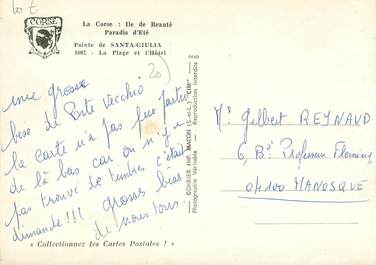 10 €
CORSE
La Corse : Ile de Beauté
Paradis d'Eté
Pointe de SANTA-GIULIA
1807 - La Plage et l'Hôtel
20)
une grosse
bise de Porto Vecchio
la carte n'a pas pu partir
de là bas car on n'y a
pas trouvé de timbres c'était
dimanche!!! grosses bises
de nous tous.
« Collectionnez les Cartes Postales ! »
COMBIER IMP. MACON (S.-et-L.) "CIM"
Photographie Véritable - Reproduction Interdite
Mr Gilbert REYNAUD
6, Bd Professeur Fleming
04100 MANOSQUE